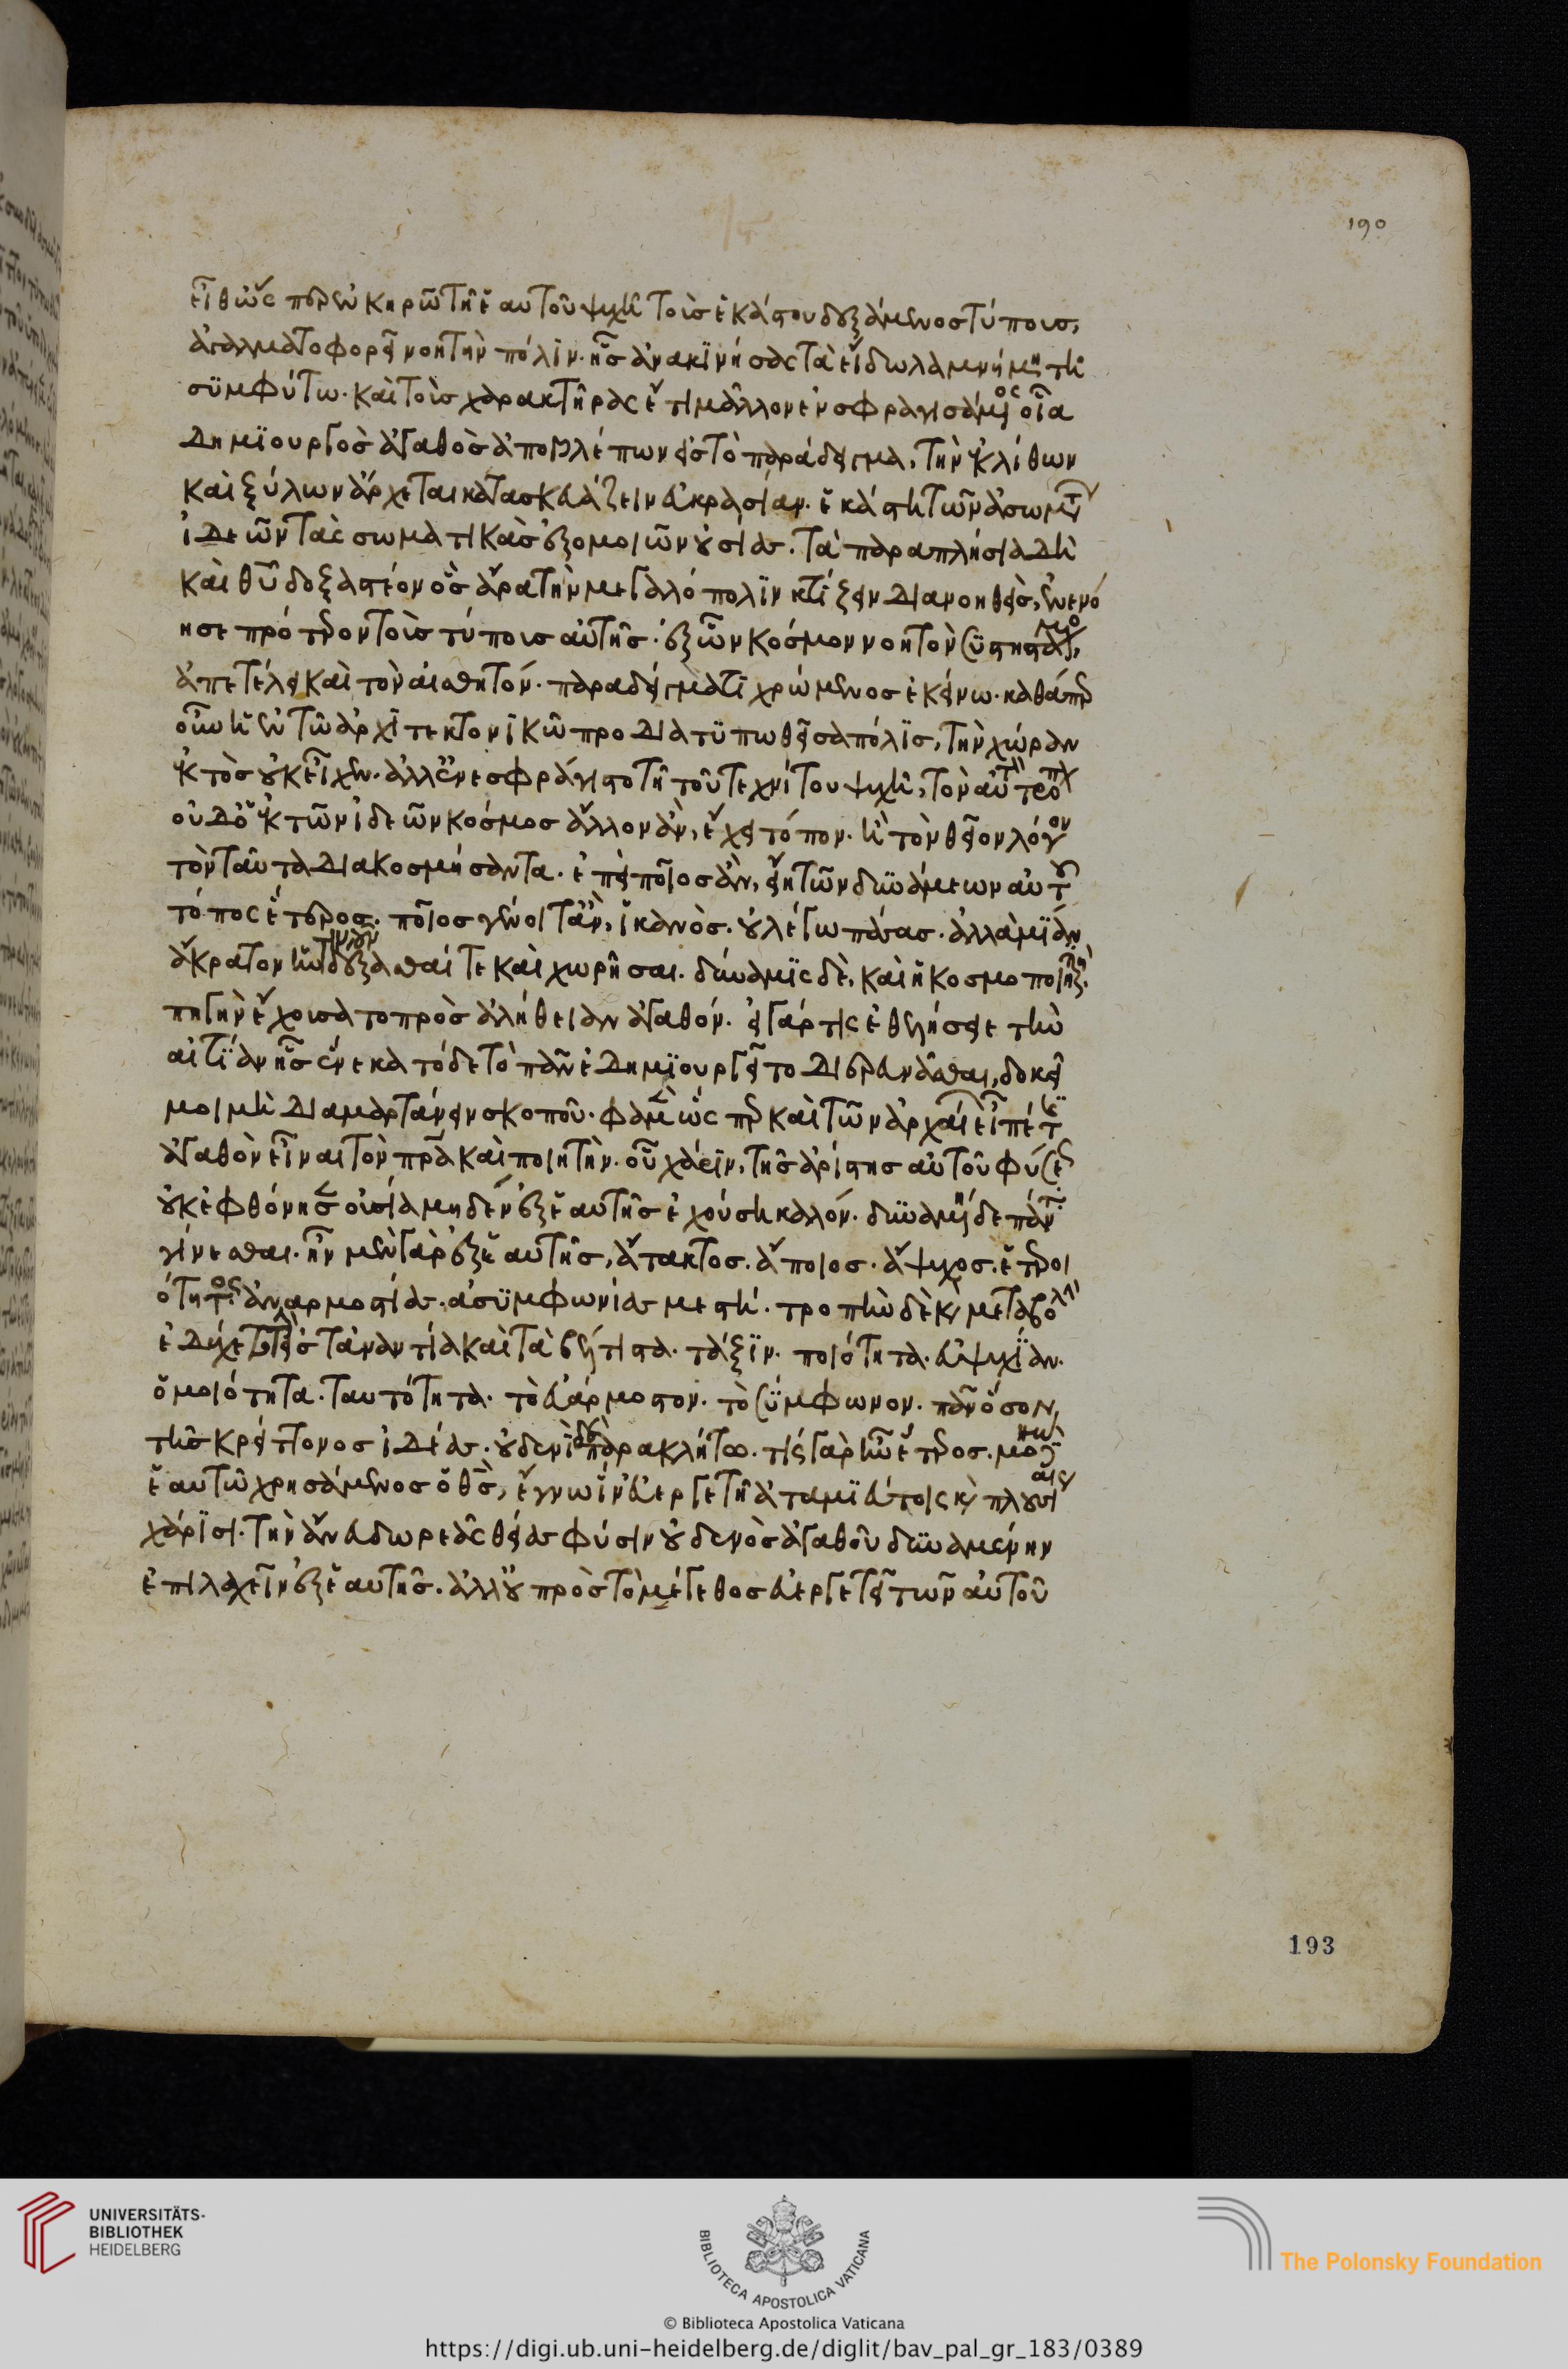 εἶθ ὥσπερ ἐν κηρῶ τῆ ἑαυτοῦ ψυχῆ τοὺσ ἑκάστου δεξάμενοσ τύπουσ,
ἀγαλματοφορεῖ νοητὴν πόλιν. ἧσ ἀνακινήσας τὰ εἴδωλα μνήμη τῆ
συμφύτω. καὶ τοὺσ χαρακτῆρας ἔτι μᾶλλον ἐνσφραγισάμενος οἷα
δημϊουργὸσ ἀγαθὸσ ἀποβλέπων εἰσ τὸ παράδειγμα, τὴν ἐκ λίθων
καὶ ξύλων ἄρχεται κατασκευάζειν εὐκρασίαν. ἑκάστη τῶν ἀσωμάτων
ἰδεῶν τὰς σωματικὰσ ἐξομοιῶν οὐσίασ. τὰ παραπλήσια δὴ
καὶ θεοῦ δοξαστέον ὡσ ἄρα τὴν μεγαλόπολϊν κτίζειν διανοηθεὶσ, ἐνενό
ησε πρότερον τοὺσ τύπουσ αὐτῆσ. ἐξ ὧν κόσμον νοητὸν συστησάμενος,
ἀπετέλει καὶ τὸν αἰσθητόν. παραδείγματϊ χρώμενοσ ἐκείνω. καθάπερ
οὖν ἡ ἐν τῶ ἀρχϊτεκτονϊκῶ προδιατϋπωθεῖσα πόλϊσ, τὴν χώραν
ἐκτὸσ οὐκ εἶχεν. ἀλλ ἐνεσφράγιστο τῆ τοῦ τεχνίτου ψυχῆ, τὸν αὐτὸν τρόπον
οὐδ ὁ ἐκ τῶν ἰδεῶν κόσμοσ ἄλλον ἂν, ἔχει τόπον. ἢ τὸν θεῖον λόγον
τὸν ταῦτα διακοσμήσαντα. ἐπεὶ ποῖοσ ἂν, εἴη τῶν δυνάμεων αὐτοῦ
τόποσ ἕτεροσ. ποῖοσ γένοιτ ἂν, ἱκανὸσ. οὐ λέγω πάσασ. ἀλλὰ μϊὰν
ἄκρατον ἡντινοῦν δέξασθαί τε καὶ χωρῆσαι. δύναμϊς δὲ, καὶ ἡ κοσμοποιητικὴ.
πηγὴν ἔχουσα τὸ πρὸσ ἀλήθειαν ἀγαθόν. εἰ γάρ τις ἐθελήσειε τὴν
αἰτϊὰν ἧσ ἕνεκα τόδε τὸ πᾶν ἐδημϊουργεῖτο διερευνᾶσθαι, δοκεῖ
μοι μὴ διαμαρτάνειν σκοποῦ. φάμενος ὥσπερ καὶ τῶν ἀρχαίων εἶπέ τις
ἀγαθὸν εἶναι τὸν πρα καὶ ποιητὴν. οὗ χάριν, τῆσ ἀρίστησ αὐτοῦ φύσεως
οὐκ ἐφθόνησεν οὐσία μηδὲν ἐξ ἑαυτῆσ ἐχούση καλόν. δυναμένη δὲ πάντα
γίνεσθαι. ἦν μὲν γὰρ ἐξ ἑαυτῆσ, ἄτακτοσ. ἄποιοσ. ἄψυχοσ. ἑτεροι
ότητος ἀναρμοστίασ. ἀσϋμφωνίασ μεστή. τροπὴν δὲ καὶ μεταβολὴν
ἐδέχετο τὴν εἰσ τἀναντία καὶ τὰ βέλτιστα. τάξϊν. ποιότητα. εὐψυχϊαν.
ὁμοιότητα. ταυτότητα. τὸ εὐάρμοστον. τὸ σϋμφωνον. πᾶν ὅσον,
τῆσ κρείττονοσ ἰδέασ. οὐδενὶ δὲ παρακλήτω. τίσ γὰρ ἦν ἕτεροσ. μόνω
ἑαυτῶ χρησάμενοσ ὁ θσ, ἔγνω δεῖν εὐεργετῆ ἀταμϊεύτοις καὶ πλουσίαις
χάρϊσι. τὴν ἄνευ δωρεᾶς θείασ φύσιν οὐδενὸσ ἀγαθοῦ δυναμένην
ἐπιλαχεῖν ἐξ ἑαυτῆσ. ἀλλ οὐ πρὸσ τὸ μέγεθοσ εὐεργετεῖ τῶν αὐτοῦ
190
193
UNIVERSITÄTS-
BIBLIOTHEK
HEIDELBERG
BIBLIOTECA APOSTOLICA VATICANA
The Polonsky Foundation
© Biblioteca Apostolica Vaticana
https://digi.ub.uni-heidelberg.de/diglit/bav_pal_gr_183/0389